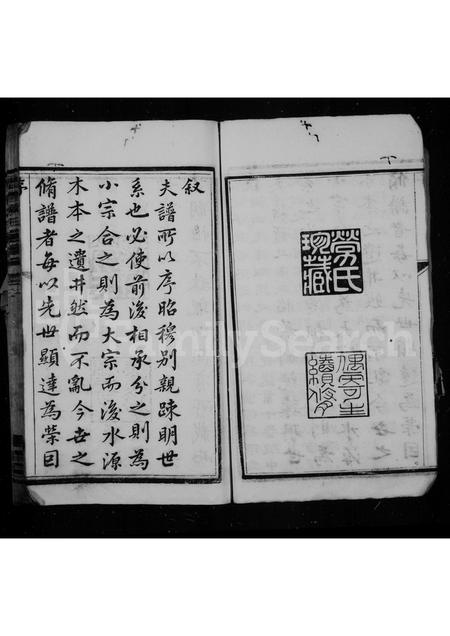 勞氏
珍藏
偶寄生
續修
叙
夫譜所以序昭穆别親疎明世
系也必使前後相承分之則為
小宗合之則為大宗而後水源
木本之遺井然而不亂今世之
脩譜者每以先世顯達為榮因
序
FamilySearch